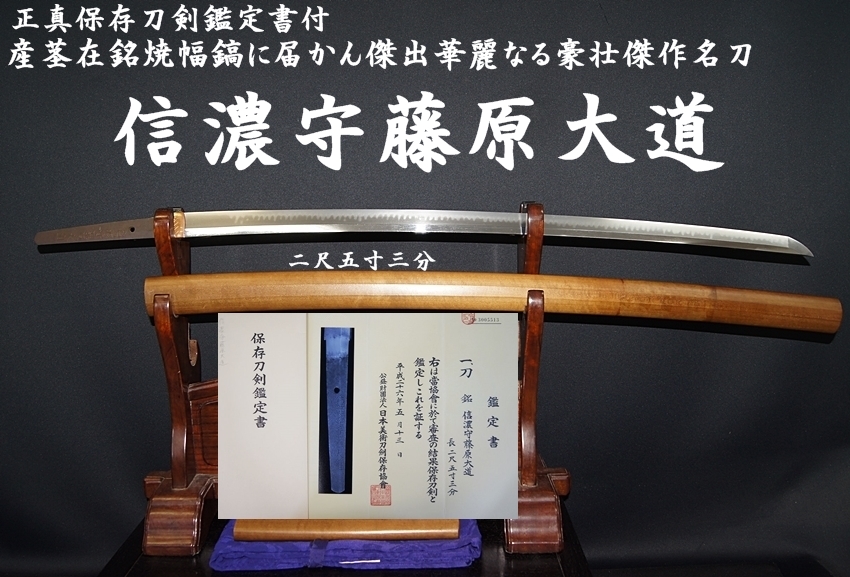 正真保存刀剣鑑定書付
産茎在銘焼幅鎬に届かん傑出華麗なる豪壮傑作名刀
信濃守藤原大道
二尺五寸三分
鑑定書
一、刀 銘 信濃守藤原大道
長 二尺五寸三分
右は當協會に於て審査の結果保存刀剣と
鑑定しこれを証する
平成二十六年五月十三日
公益財團法人日本美術刀剣保存協會
保存刀剣鑑定書